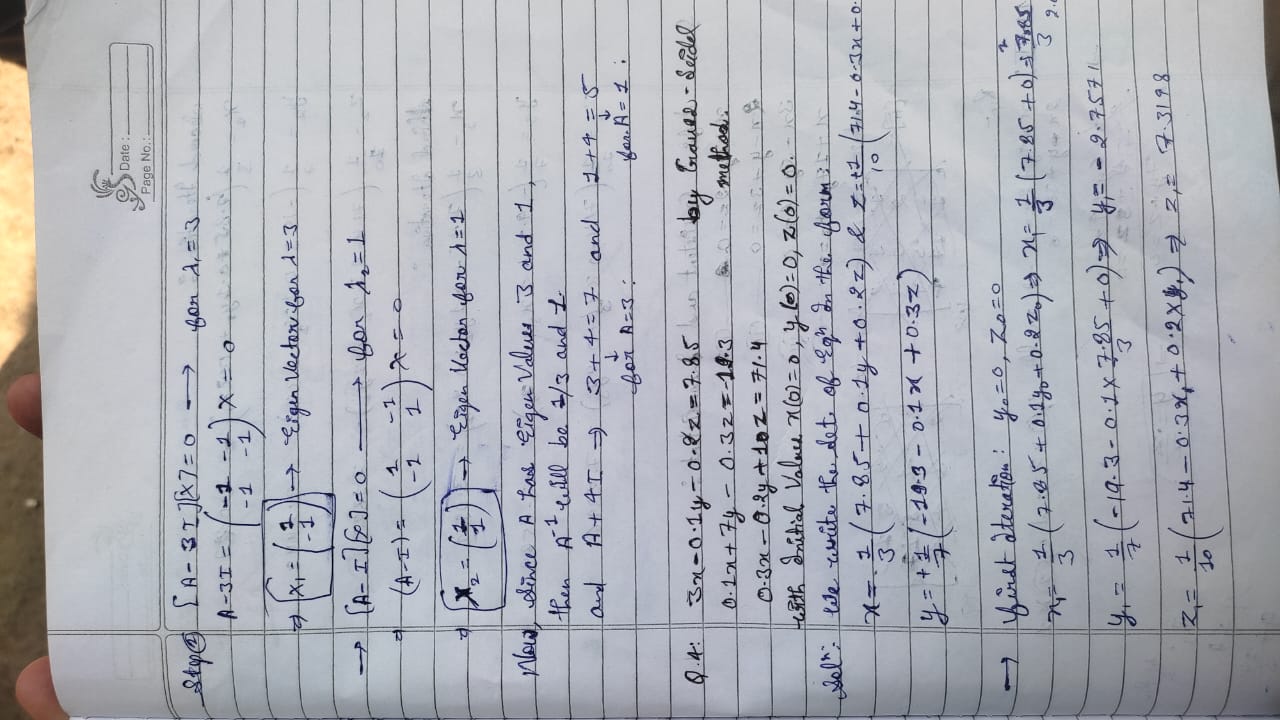 Date:
Page No.:
Step② [A-3I][X]=0 → for λ₁=3
A-3I = (-1 -1 / -1 -1) X = 0
⇒ [X₁ = (1 / -1)] → Eigen Vector for λ=3
→ [A-I][x]=0 → for λ₂=1
⇒ (A-I) = (1 -1 / -1 1) X = 0
⇒ [X₂ = (1 / 1)] → Eigen Vector for λ=1
Now, Since A has Eigen Values 3 and 1,
then A⁻¹ will be 1/3 and 1.
and A+4I → 3+4=7 and 1+4=5
for A=3: for A=1:
Q.4: 3x-0.1y-0.2z=7.85 by Gauss-Seidel
0.1x+7y-0.3z=-19.3 method.
0.3x-0.2y+10z=71.4
with Initial Values x(0)=0, y(0)=0, z(0)=0.
Solⁿ: We write the sets of Eqⁿ in the form:
x = 1/3 (7.85+0.1y+0.2z) & z=+1/10 (71.4-0.3x+0.
y = +1/7 (-19.3-0.1x+0.3z)
→ first iteration: y₀=0, z₀=0
x₁ = 1/3 (7.85+0.1y₀+0.2z₀) ⇒ x₁ = 1/3 (7.85+0) ⇒ 7.85/3
y₁ = 1/7 (-19.3-0.1×7.85/3+0) ⇒ y₁ = -2.7571
z₁ = 1/10 (71.4-0.3x₁+0.2×y₁) ⇒ z₁ = 7.3198